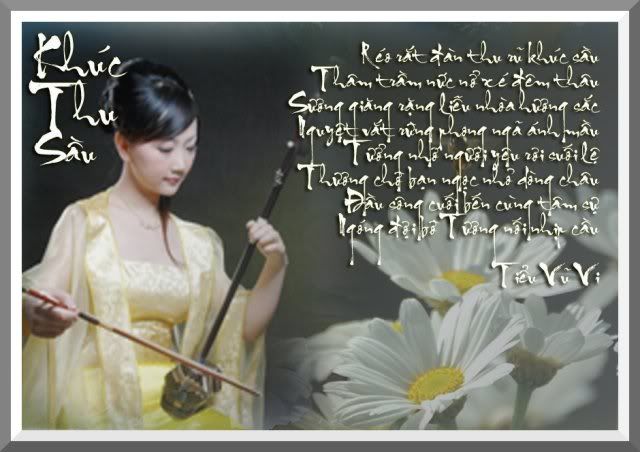 Khúc
Thu
Sầu
Réo rắt đàn thu rũ khúc sầu
Thâm trầm nức nở xé đêm thâu
Sương giăng rặng liễu nhòa hương sắc
Nguyệt vắt rừng phong ngã ánh mầu
Tưởng nhớ người yêu rơi suối lệ
Thương chờ bạn ngọc nhỏ dòng châu
Đầu sông cuối bến cùng tâm sự
Ngóng đợi bờ Tương nối nhịp cầu
Tiểu Vũ Vi